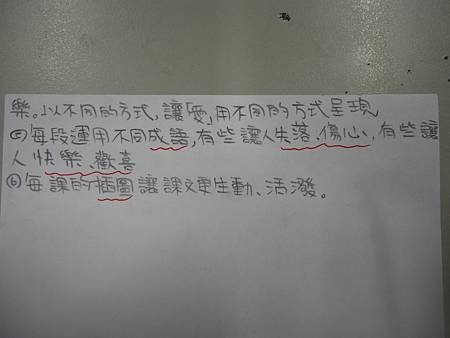 樂。以不同的方式,讓愛,用不同的方式呈現
⑤每段運用不同成語,有些讓人失落、傷心,有些讓
人快樂、歡喜
⑥每課的插圖讓課文更生動、活潑。